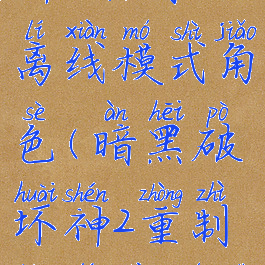 lí xiàn mó shì jiǎo
离线模式角
sè àn hēi pò
色(暗黑破
huài shén zhòng zhì
坏神2重制